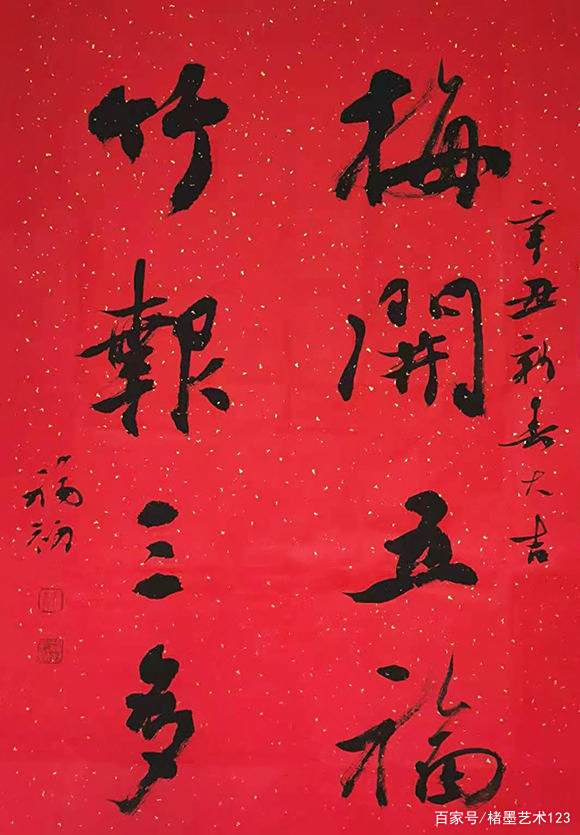 辛丑新春大吉
梅開五福
竹報三多
福初
百家号/楮墨艺术123